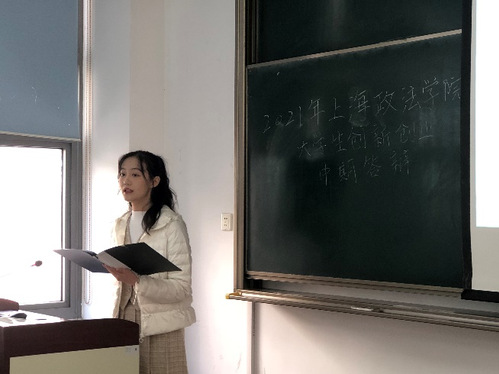 2021年上海政法学院
大学生创新创业
中期答辩